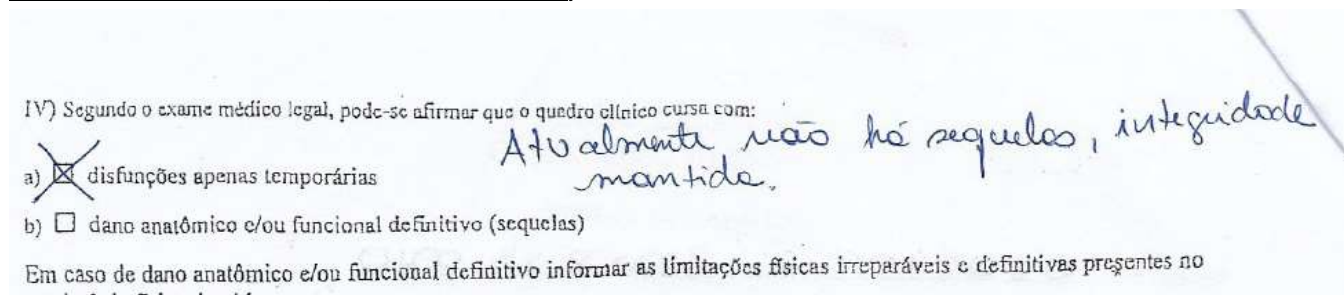 IV) Segundo o exame médico legal, pode-se afirmar que o quadro clínico cursa com:
Atualmente não há sequelas, integridade
mantida.
a) ☒ disfunções apenas temporárias
b) ☐ dano anatômico e/ou funcional definitivo (sequelas)
Em caso de dano anatômico e/ou funcional definitivo informar as limitações físicas irreparáveis e definitivas presentes no